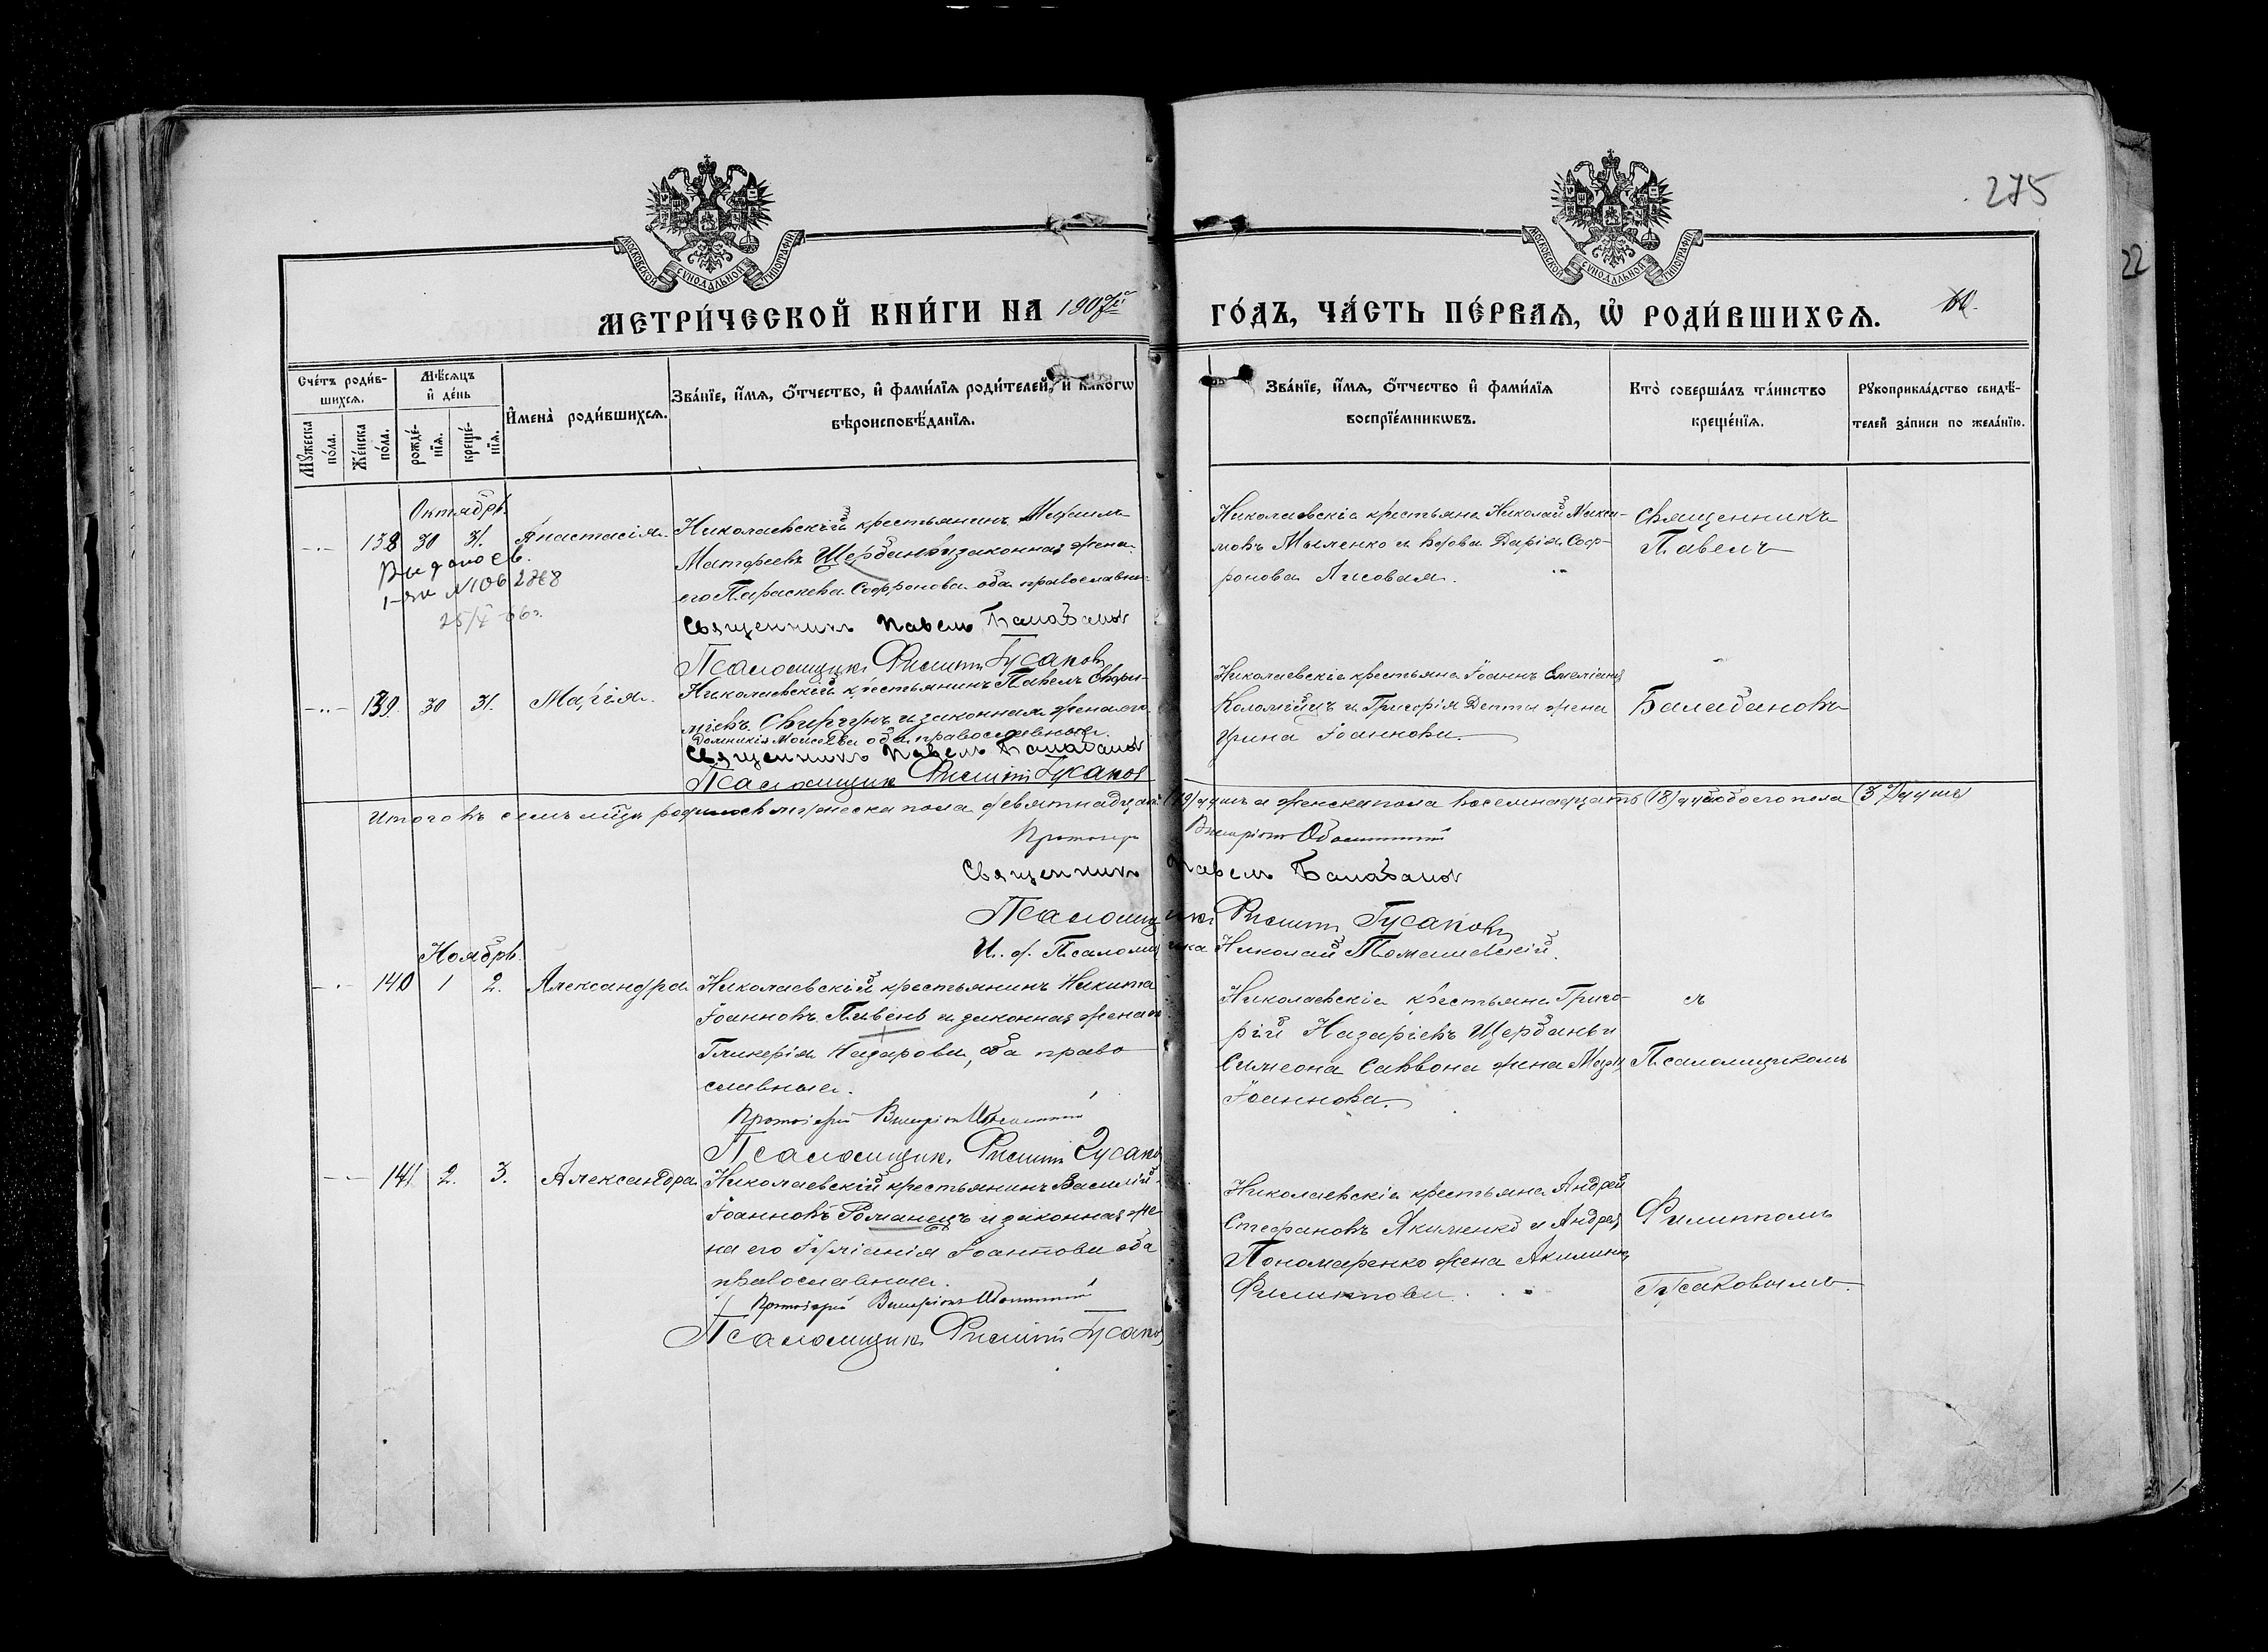 275
22
МОСКОВСКОЙ СѴНОДАЛЬНОЙ ТИПОГРАФІИ
МОСКОВСКОЙ СѴНОДАЛЬНОЙ ТИПОГРАФІИ
МЕТРИ́ЧЕСКОЙ КНИ́ГИ НА 1907й
ГО́ДЪ, ЧА́СТЬ ПЕ́РВАѦ, Ѽ РОДИ́ВШИХСѦ.
Сче́тъ роди́в-
шихсѧ.
Мꙋ́жеска
по́ла.
Же́нска
по́ла.
Мѣ́сѧцъ
и҆ де́нь
рожде́-
нїѧ.
креще́-
нїѧ.
И҆мена̀ роди́вшихсѧ.
Зва́нїе, и҆́мѧ, ѻ҆́тчество, и҆ фами́лїѧ роди́телей, и҆ како́гѡ
вѣроисповѣ́данїѧ.
Зва́нїе, и҆́мѧ, ѻ҆́тчество и҆ фами́лїѧ
воспрїе́мникѡвъ.
Кто̀ соверша́лъ та́инство
креще́нїѧ.
Рꙋкоприкла́дство свидѣ́-
телей за́писи по жела́нїю.
Октябрь.
138 30 31. Анастасія.
Николаевскій крестьянинъ Мефаилъ
Матфеевъ Щербань и законная жена
его Параскева Софронова оба православные
Священникъ Павелъ Балабановъ
Псаломщикъ Филиппъ Гусаковъ
Николаевскіе крестьяне Николай Макси-
мовъ Мыленко и вдова Дарія Соф-
ронова Лисовая.
Священникъ
Павелъ
Выдано св.
1-ЯИ №062768
25/V-66г.
139. 30 31. Марія.
Николаевскій крестьянинъ Павелъ
Свиргунъ и законная жена его
Домникія Моисеева оба православные.
Священникъ Павелъ Балабановъ
Псаломщикъ Филиппъ Гусаковъ
Николаевскіе крестьяне Іоаннъ Емеліановъ
Коломіецъ и Григорія Детта жена
Ирина Іоаннова.
Балабановъ
Итого въ семъ м-цѣ родилось мужеска пола девятнадцать (19) душъ а женска пола восемнадцать (18) душъ обоего пола (37 душъ)
Протоіерей
Священникъ Павелъ Балабановъ
Псаломщикъ Филиппъ Гусаковъ
И. д. Псаломщика Николай Томашевскій.
Ноябрь.
140 1 2. Александра
Николаевскій крестьянинъ Никита
Іоанновъ Пивень и законная жена его
Гликерія Назарова, оба право-
славные.
Псаломщикъ Филиппъ Гусаковъ
Николаевскіе крестьяне Григо-
рій Назаріевъ Щербань и
Симеона Саввона жена Марія
Іоаннова.
съ
Псаломщикомъ
141 2. 3. Александра
Николаевскій крестьянинъ Василій
Іоанновъ Романецъ и законная же-
на его Іуліанія Іоаннова оба
православные.
Псаломщикъ Филиппъ Гусаковъ
Николаевскіе крестьяне Андрей
Стефановъ Якименко и Андрея
Пономаренко жена Акилина
Филиппова.
Филиппомъ
Гусаковымъ.